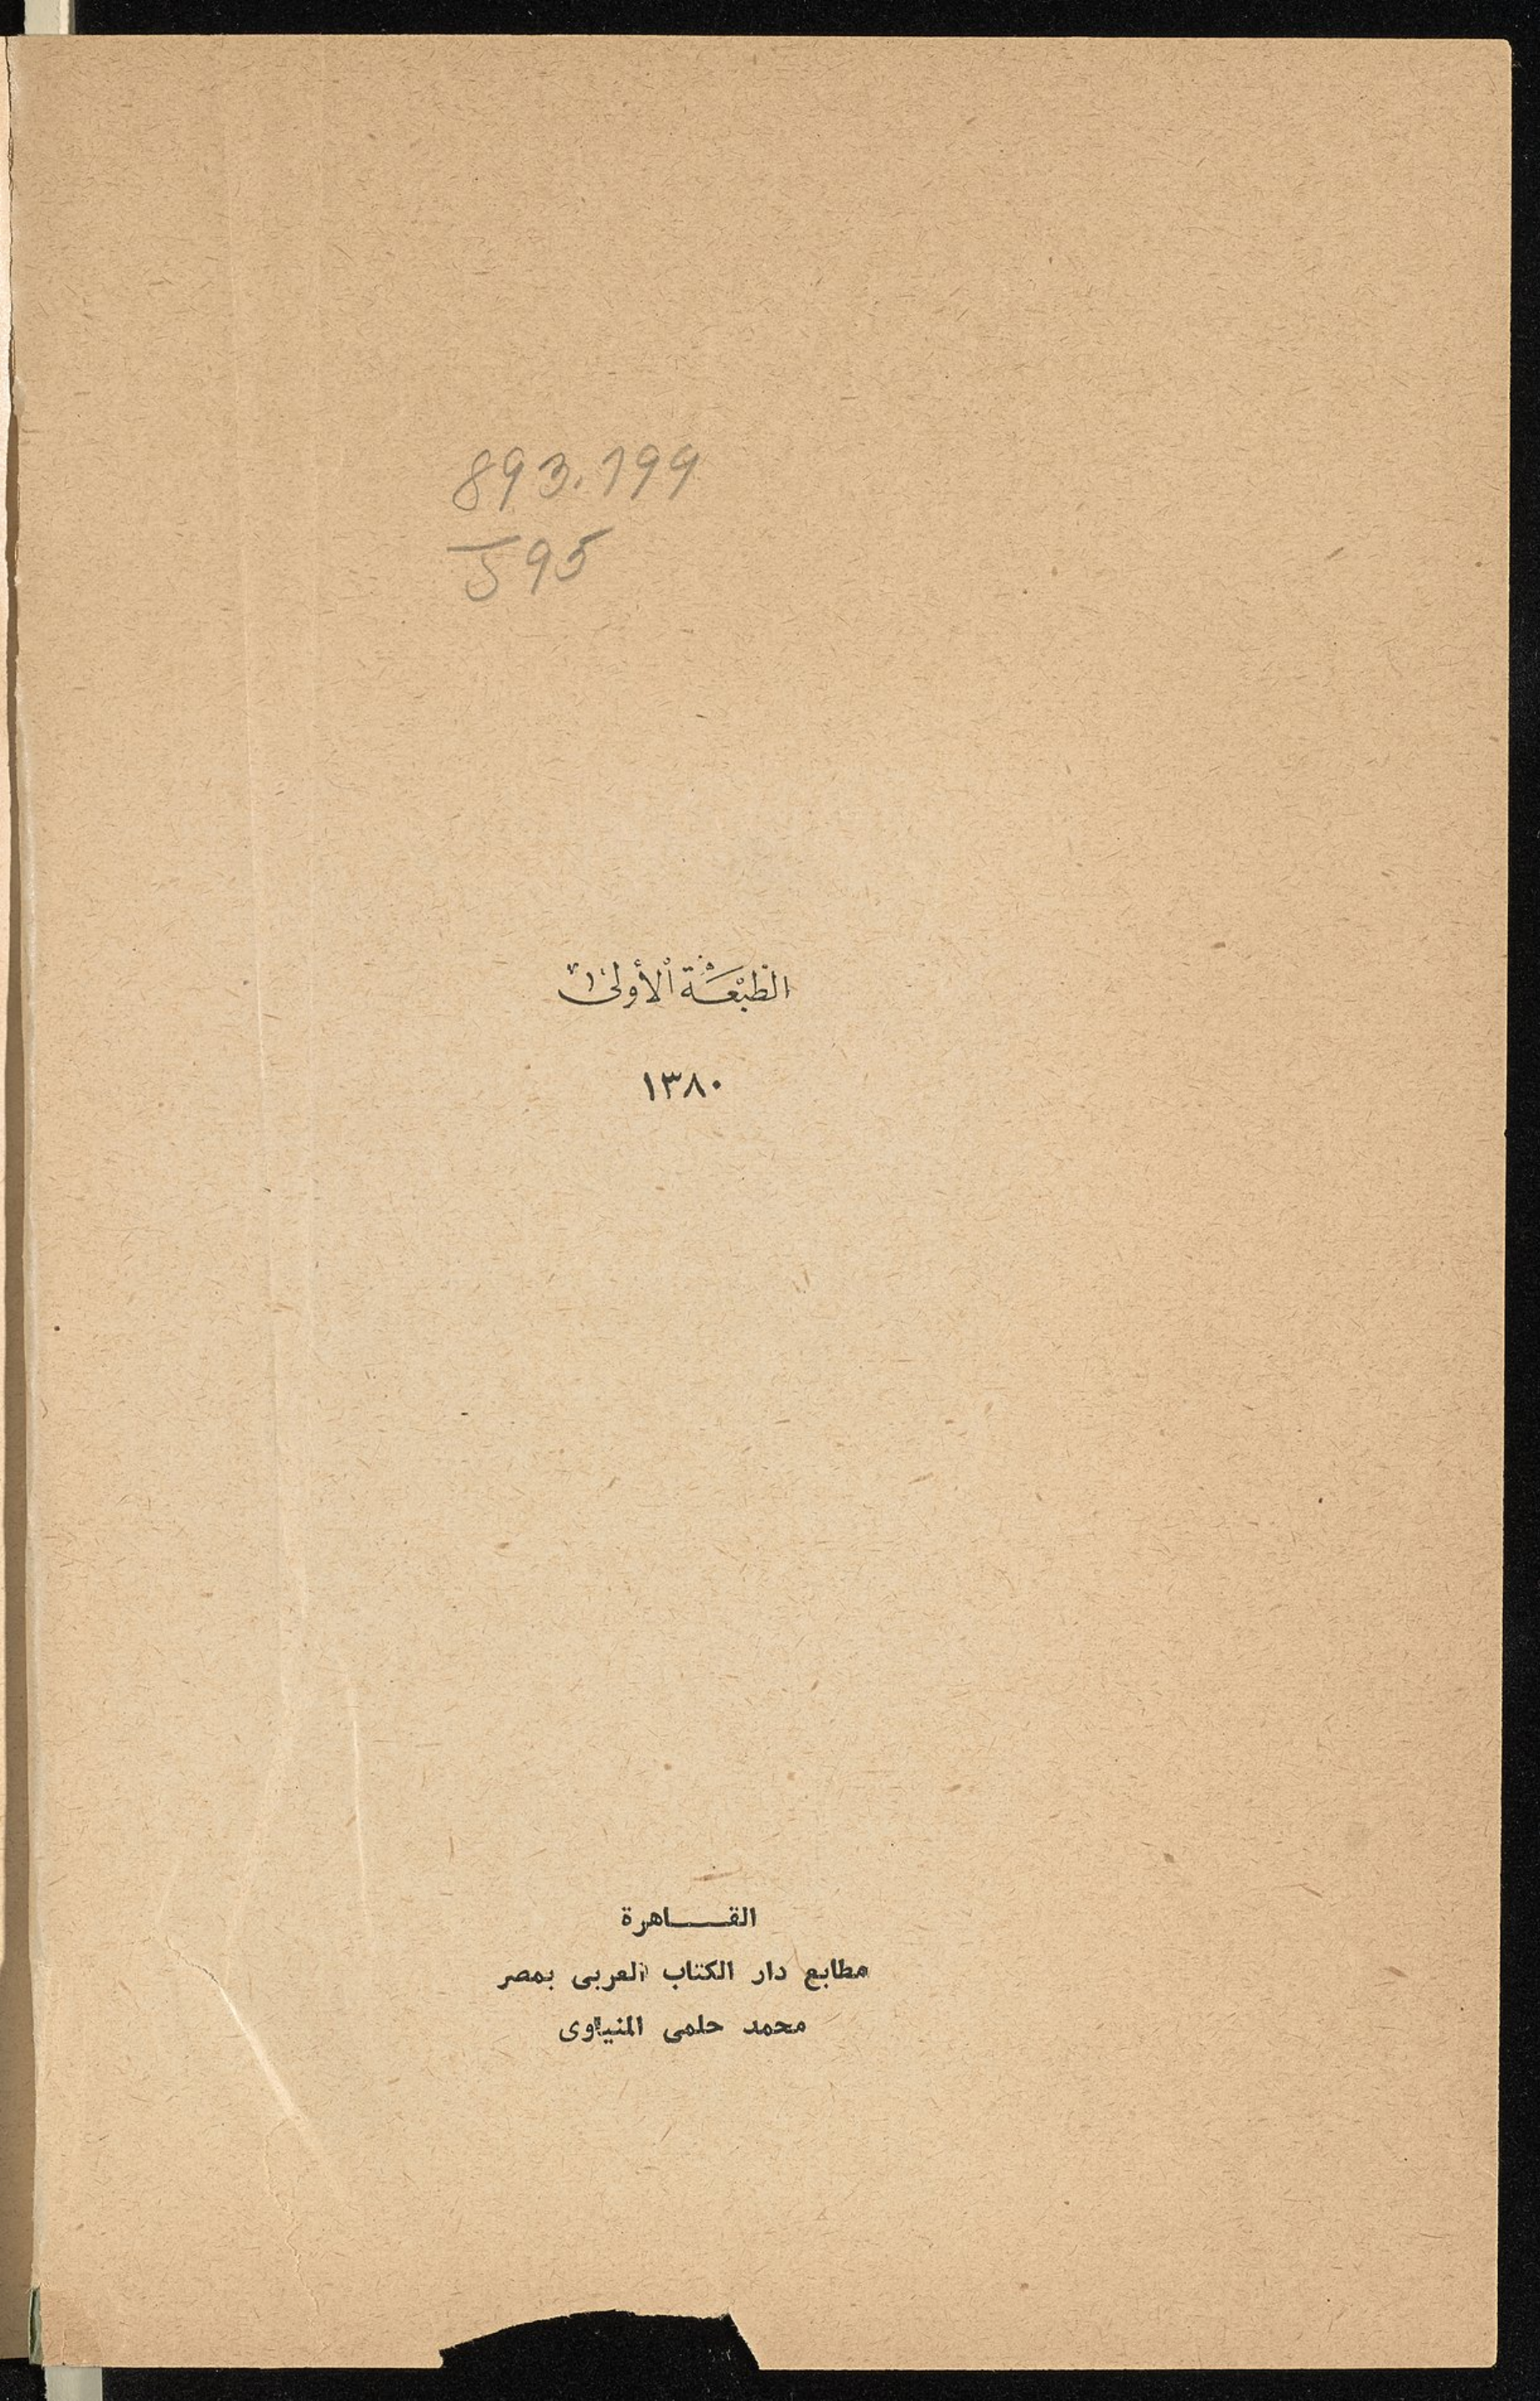 893.199
J95
الطَّبْعَـة الأولى
١٣٨٠
القـــاهرة
مطابع دار الكتاب العربى بمصر
محمد حلمى المنياوى